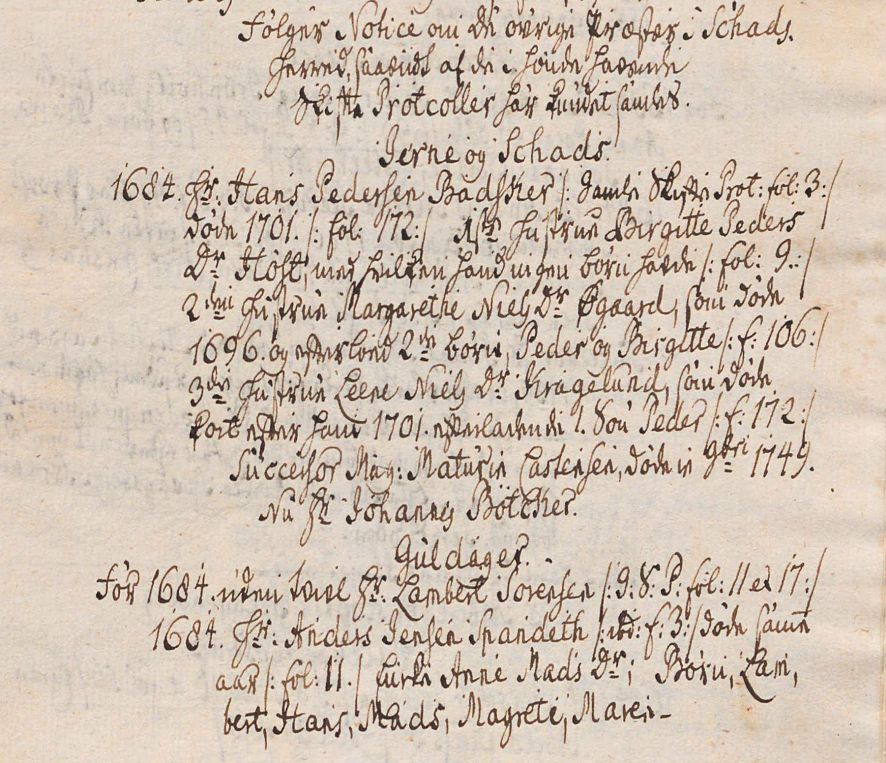 Følger Notice om de øvrige Præster i Schads.
Herred, saavidt af de i hænde havende
Skifte Protcoller har kundet samles.
Jerne og Schads.
1684. Hr. Hans Pedersen Badsker /: Gamle Skifte Prot: fol: 3:/
døde 1701. /: fol: 172:/ 1ste Hustrue Birgitte Peders
Dr Høst, med hvilken hand ingen børn havde /: fol: 9.:/
2den Hustrue Margarethe Niels Dr Øgaard, som døde
1696. og efterloed 2de børn, Peder og Birgitte /: f: 106:/
3die Hustrue Leene Niels Dr Kragelund, som døde
kort efter ham 1701. efterladende 1. Søn Peder /: f: 172:/
Successor Mag: Maturin Castensen, døde in 9bri 1749.
Nu Hr Johannes Bötcker.
Guldager.
Før 1684. uden tvivl Hr. Lambert Sorensen /: G: S: P: fol: 11 et 17:/
1684. Hr: Anders Jensen Spandeth /: ibd: f: 3:/ døde samme
aar /: fol: 11. / Anne Mads Dr; Børn, Lam,
bert, Hans, Mads, Magrete, Maren-